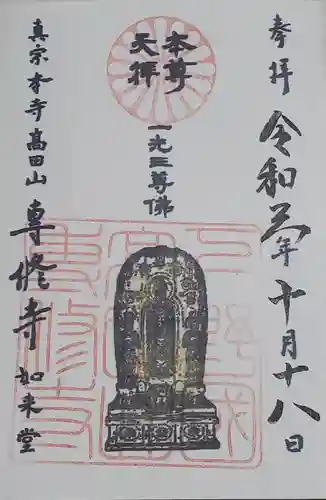 奉拝
令和三年十月十八日
本尊
天拝
一光三尊佛
真宗本寺高田山
専修寺
如来堂